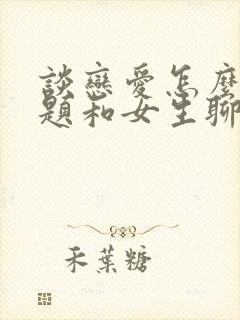 談戀愛怎麼
題和女生聊
禾葉糖